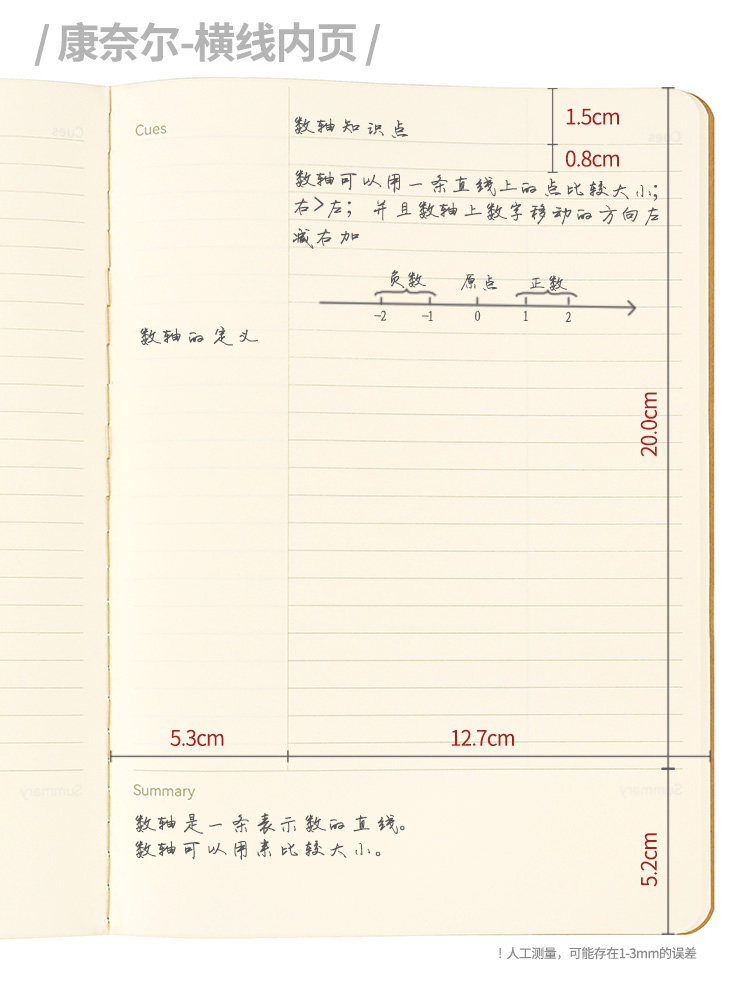 / 康奈尔-横线内页 /
Cues
数轴知识点
1.5cm
0.8cm
数轴可以用一条直线上的点比较大小；
右>左；并且数轴上数字移动的方向左
减右加
负数 原点 正数
-2 -1 0 1 2
数轴的定义
20.0cm
5.3cm 12.7cm
Summary
数轴是一条表示数的直线。
数轴可以用来比较大小。
5.2cm
！人工测量，可能存在1-3mm的误差
Cues
Cues
Summary
Summary